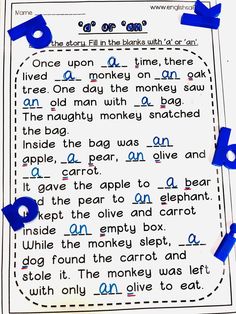 Name:
www.englishsaf
'a' or 'an'
the story. Fill in the blanks with 'a' or 'an'.
Once upon a time, there
lived a monkey on an oak
tree. One day the monkey saw
an old man with a bag.
The naughty monkey snatched
the bag.
Inside the bag was an
apple, a pear, an olive and
a carrot.
It gave the apple to a bear
the pear to an elephant.
kept the olive and carrot
inside an empty box.
While the monkey slept, a
dog found the carrot and
stole it. The monkey was left
with only an olive to eat.